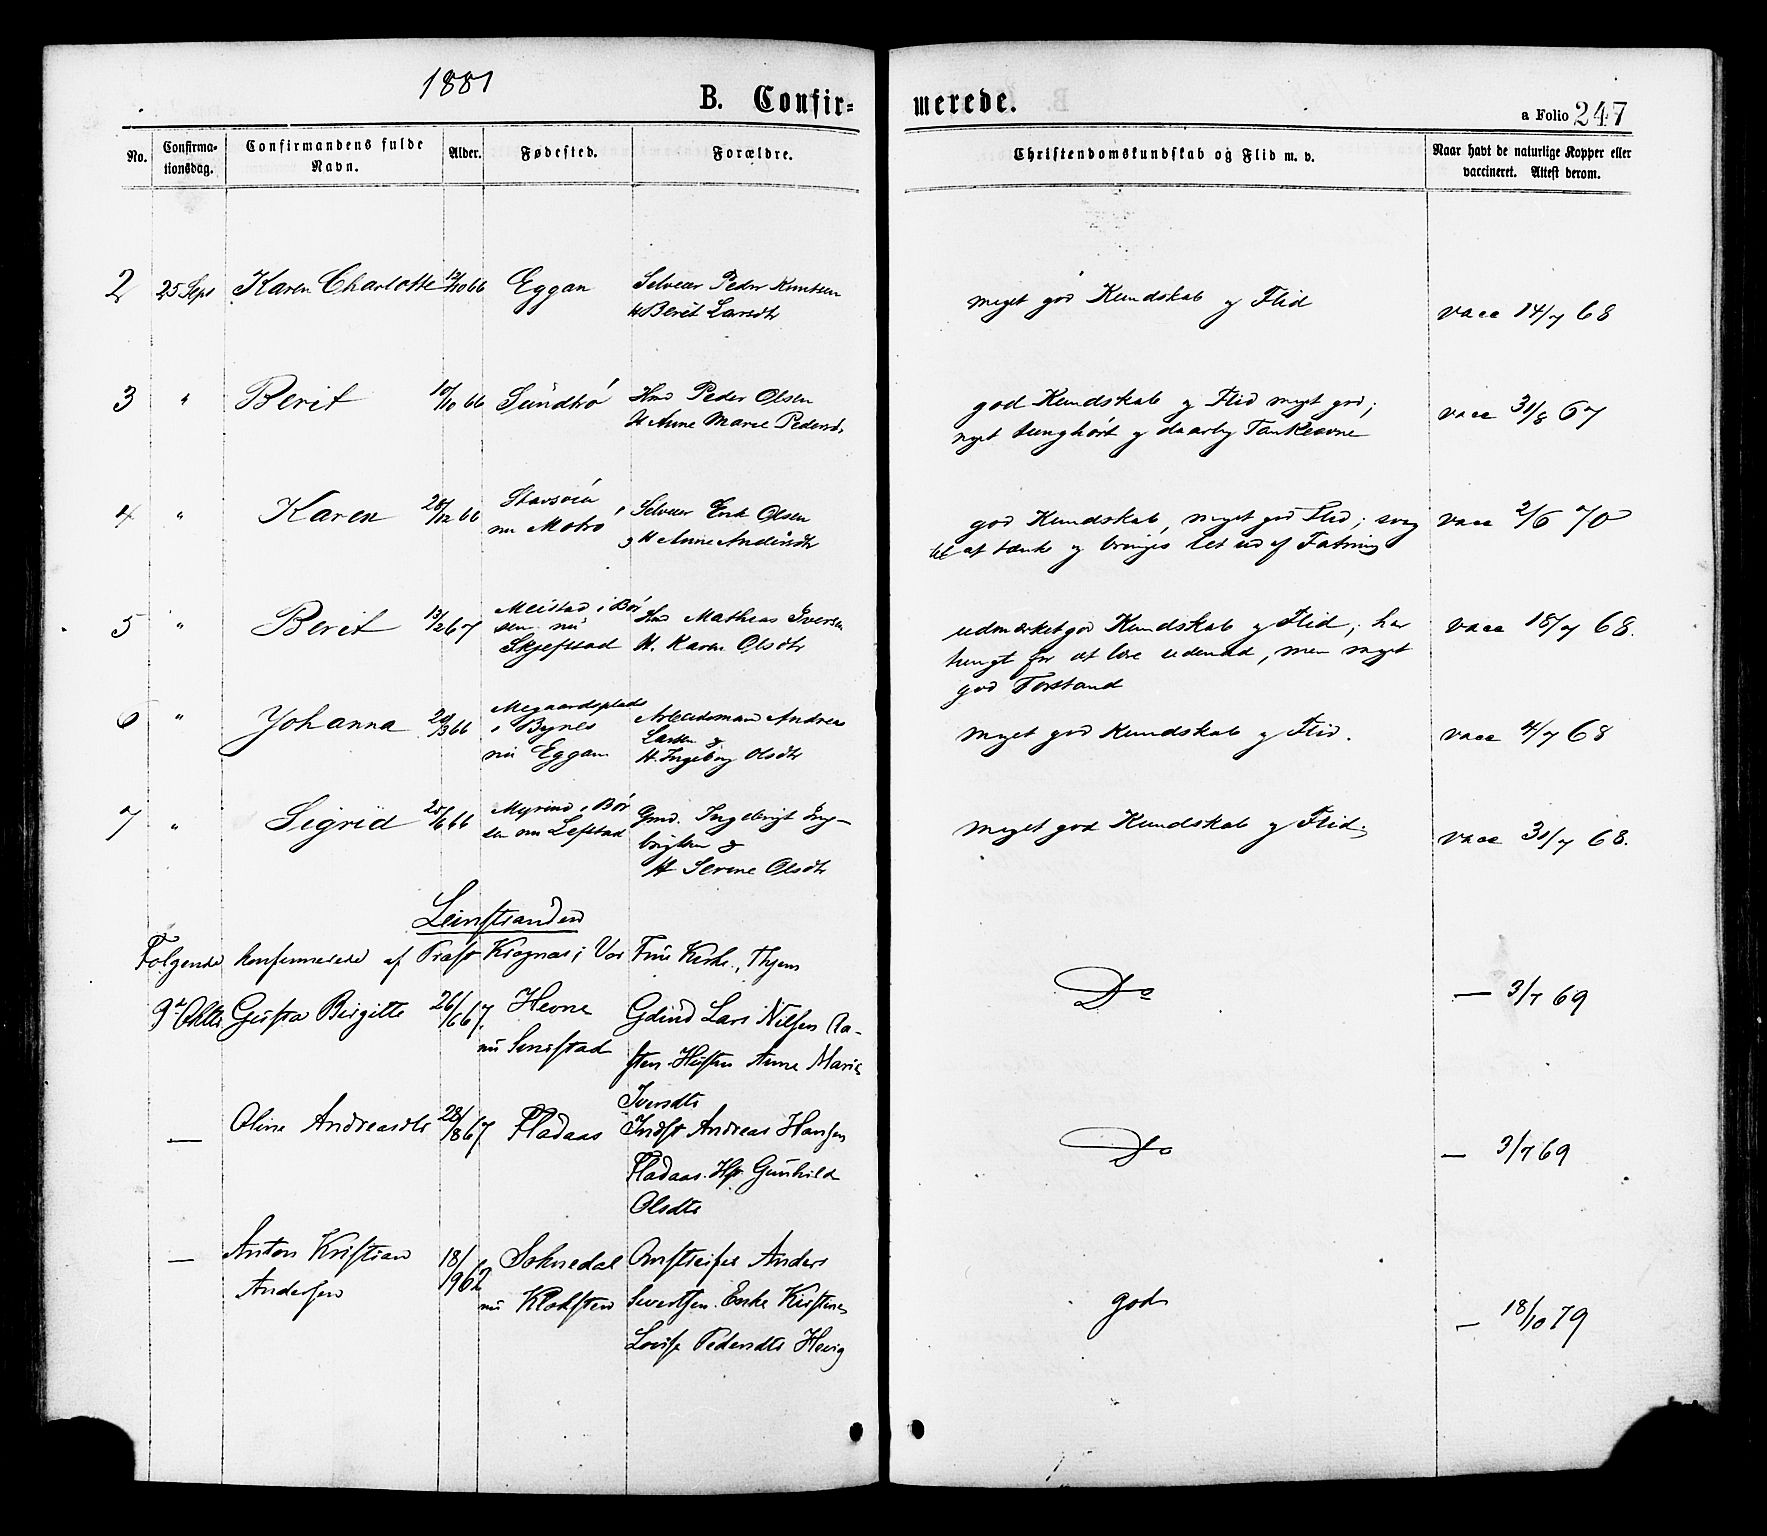 1881
B. Confir-
merede.
a Folio 247
No.
Confirma-
tionsdag.
Confirmandens fulde
Navn.
Alder.
Fødested.
Forældre.
Christendomskundskab og Flid m. v.
Naar havt de naturlige Kopper eller
vaccineret. Attest derom.
2 25 Sept Karen Charlotte 12/10 66 Eggan Selveier Peder Knutsen
H Berit Larsdtr
meget god Kundskab og Flid
vacc 14/7 68
3 " Berit 10/10 66 Sundbrö Hmd Peder Olsen
H Anne Marie Pedersdtr
god Kundskab og Flid meget god;
meget tunghört og daarlig Tankeevne
vacc 31/8 67
4 " Karen 28/12 66
nu Motrö Selveier Erik Olsen
og H Anne Andersdtr
god Kundskab, meget god Flid; svag
til at tænke og bringes let ud af Fatning
vacc 2/6 70
5 " Berit 13/2 67 Meistad i Bör
sen nu
Skjefstad
Hmd Mathias Iversen
H. Karen Olsdtr
udmærket god Kundskab og Flid; har
tungt for at lære udenad, men meget
god Forstand
vacc 18/7 68.
6 " Johanna 20/3 66 Megaardsplads
i Bynes
nu Eggan
Arbeidsmand Andreas
Larsen &
H. Ingeborg Olsdtr
meget god Kundskab og Flid.
vacc 4/7 68
7 " Sigrid 25/6 66 Myrmo i Bör
sen nu Lefstad
Gmd. Ingebrigt Ing-
brigtsen &
H Serine Olsdtr
meget god Kundskab og Flid.
vacc 31/7 68.
Leinstranden
Følgende konfirmerede af Præst Krognæs i Vor Frue Kirke, Thjem
9de Oktbr Birgitte 26/6 67. Hevne
nu
Lars Nilsen
Anne Marie
Iversdtr
Do
— 3/7 69
— Oline Andreasdtr 28/8 67 Fladaas Indst Andreas Hansen
Fladaas. Hst Gunhild
Olsdtr
Do
— 3/7 69
— Anton Kristian
Andersen
18/
1962 Soknedal
nu Kloksten
Anders
Sivertsen. Enke Kirstine
Lovise Pedersdtr Hevig
god
— 18/10 79